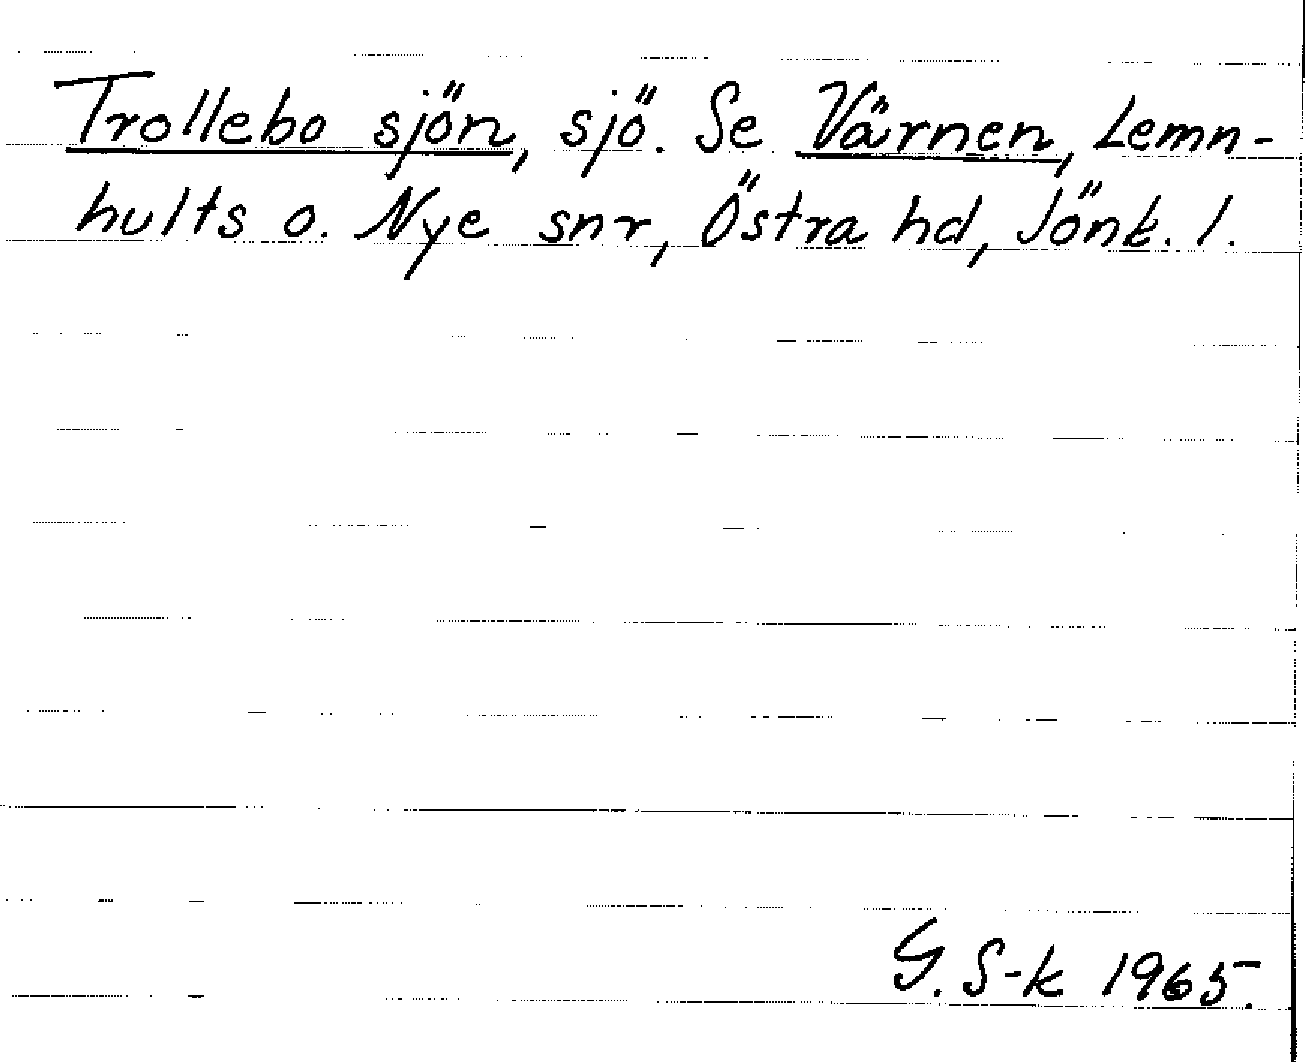 Trollebo sjön, sjö. Se Värnen, Lemn-
hults o. Nye snr, Östra hd, Jönk. l.
G. S-k 1965.